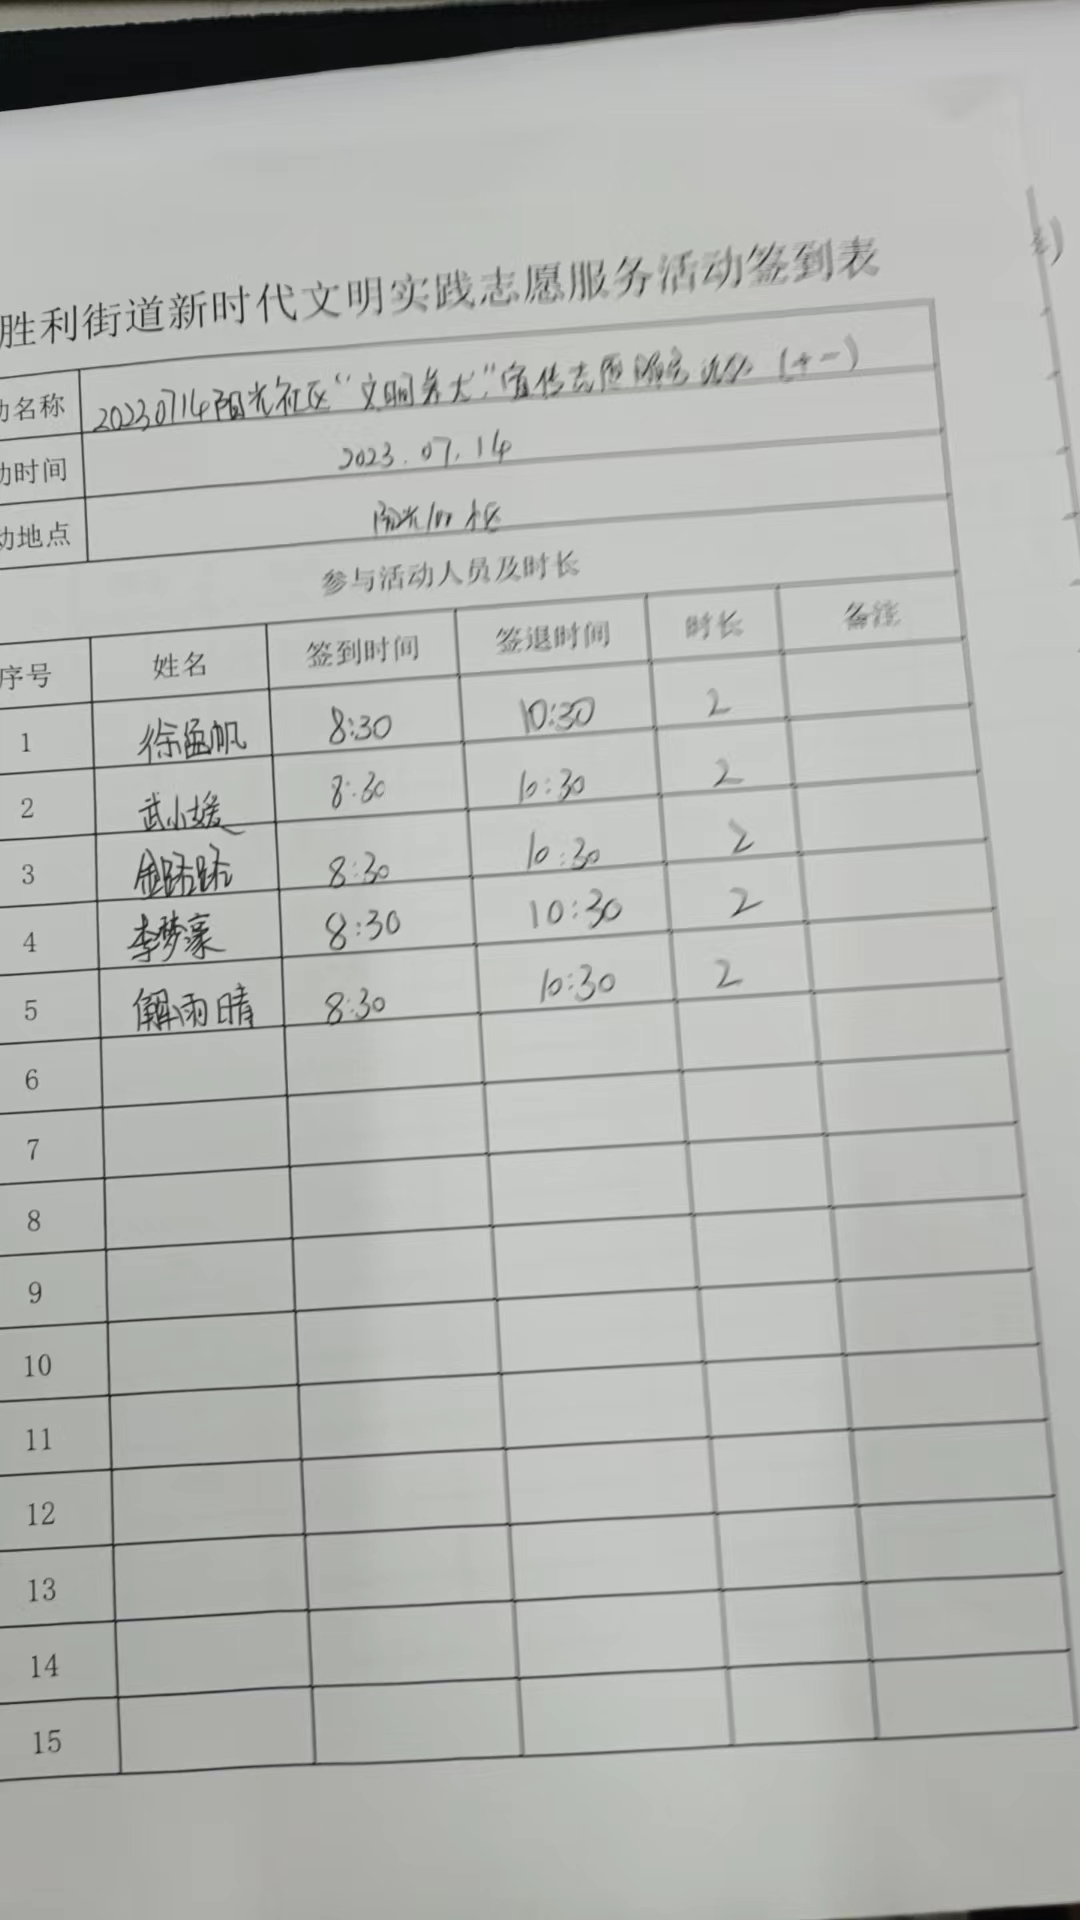 胜利街道新时代文明实践志愿服务活动签到表
动名称 20230714阳光社区“文明养犬”宣传志愿服务活动（十一）
动时间 2023.07.14
动地点 阳光社区
参与活动人员及时长
序号 姓名 签到时间 签退时间 时长 备注
1 徐孟帆 8:30 10:30 2
2 武小媛 8:30 10:30 2
3 金路路 8:30 10:30 2
4 李梦豪 8:30 10:30 2
5 解雨晴 8:30 10:30 2
6
7
8
9
10
11
12
13
14
15